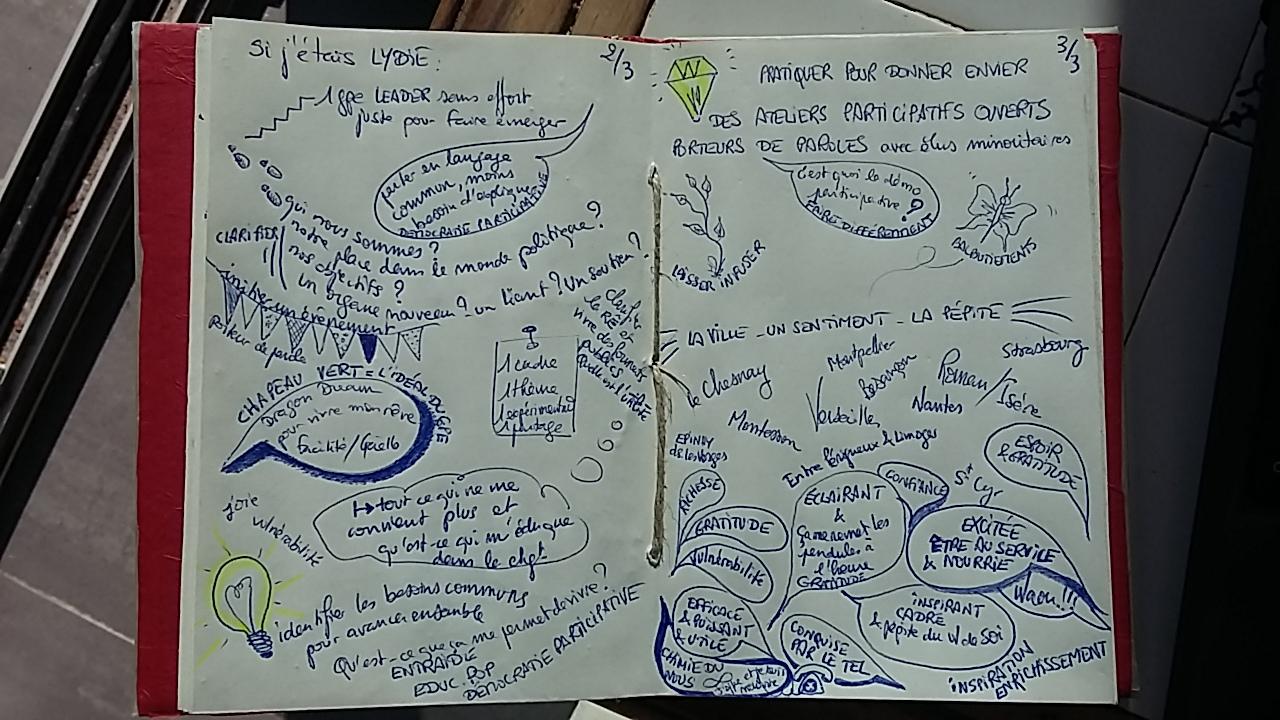 Si j'étais LYDIE :
2/3
1 gpe LEADER sans effort
juste pour faire émerger
parler en langage
commun, moins
besoin d'expliquer
DÉMOCRATIE PARTICIPATIVE
CLARIFIER
qui nous sommes ?
notre place dans le monde politique ?
nos objectifs ?
un organe nouveau ? un liant ? un soutien ?
initier un évènement
porteur de parole
CHAPEAU VERT = L'IDÉAL DU GPE
Dragon Dream
pour vivre mon rêve
facilité/Gaëlle
1 cadre
1 thème
1 expérimenté
1 partage
joie
vulnérabilité
tout ce qui ne me
convient plus et
qu'est-ce qui m'éduque
dans le chgt
identifier les besoins communs
pour avancer ensemble
Qu'est-ce que ça me permet de vivre ?
ENTRAIDE
EDUC POP
DÉMOCRATIE PARTICIPATIVE
3/3
PRATIQUER POUR DONNER ENVIE
DES ATELIERS PARTICIPATIFS OUVERTS
PORTEURS DE PAROLES avec élus minoritaires
c'est quoi la démo
participative ?
FAIRE DIFFÉREMMENT
LAISSER INFUSER
LA VILLE _ UN SENTIMENT _ LA PÉPITE
le Chesnay
Montpellier
Besançon
Roman/Isère
Strasbourg
Montesson
Versailles
Nantes
EPINAY
Entre Périgueux & Limoges
St Cyr
ESPOIR
& GRATITUDE
RICHESSE
GRATITUDE
Vulnérabilité
ÉCLAIRANT
&
ça me remet les
pendules à
l'heure
GRATITUDE
CONFIANCE
EXCITÉE
ÊTRE AU SERVICE
& NOURRIE
Waou !!!
EFFICACE
& PUISSANT
& UTILE
CHIMIE DU
NOUS
CONQUISE
PAR LE TEL
INSPIRANT
CADRE
& pépite du W de Soi
INSPIRATION
ENRICHISSEMENT